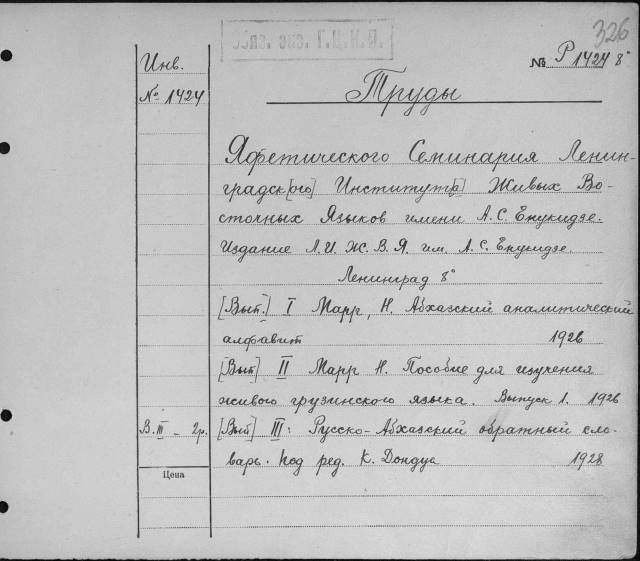 326
Инв.
№ 1424
№ Р 1424 8°
Труды
Яфетического Семинария Ленин-
градск[ого] Институт[а] Живых Во-
сточных Языков имени А.С. Енукидзе.
Издание Л.И.Ж.В.Я. им. А.С. Енукидзе.
Ленинград 8°
[Вып.] I Марр, Н. Абхазский аналитический
алфавит 1926
[Вып] II Марр Н. Пособие для изучения
живого грузинского языка. Выпуск 1. 1926
В. III – 2р. [Вып] III: Русско-Абхазский обратный сло-
варь. Под ред. К. Дондуа 1928
Цена